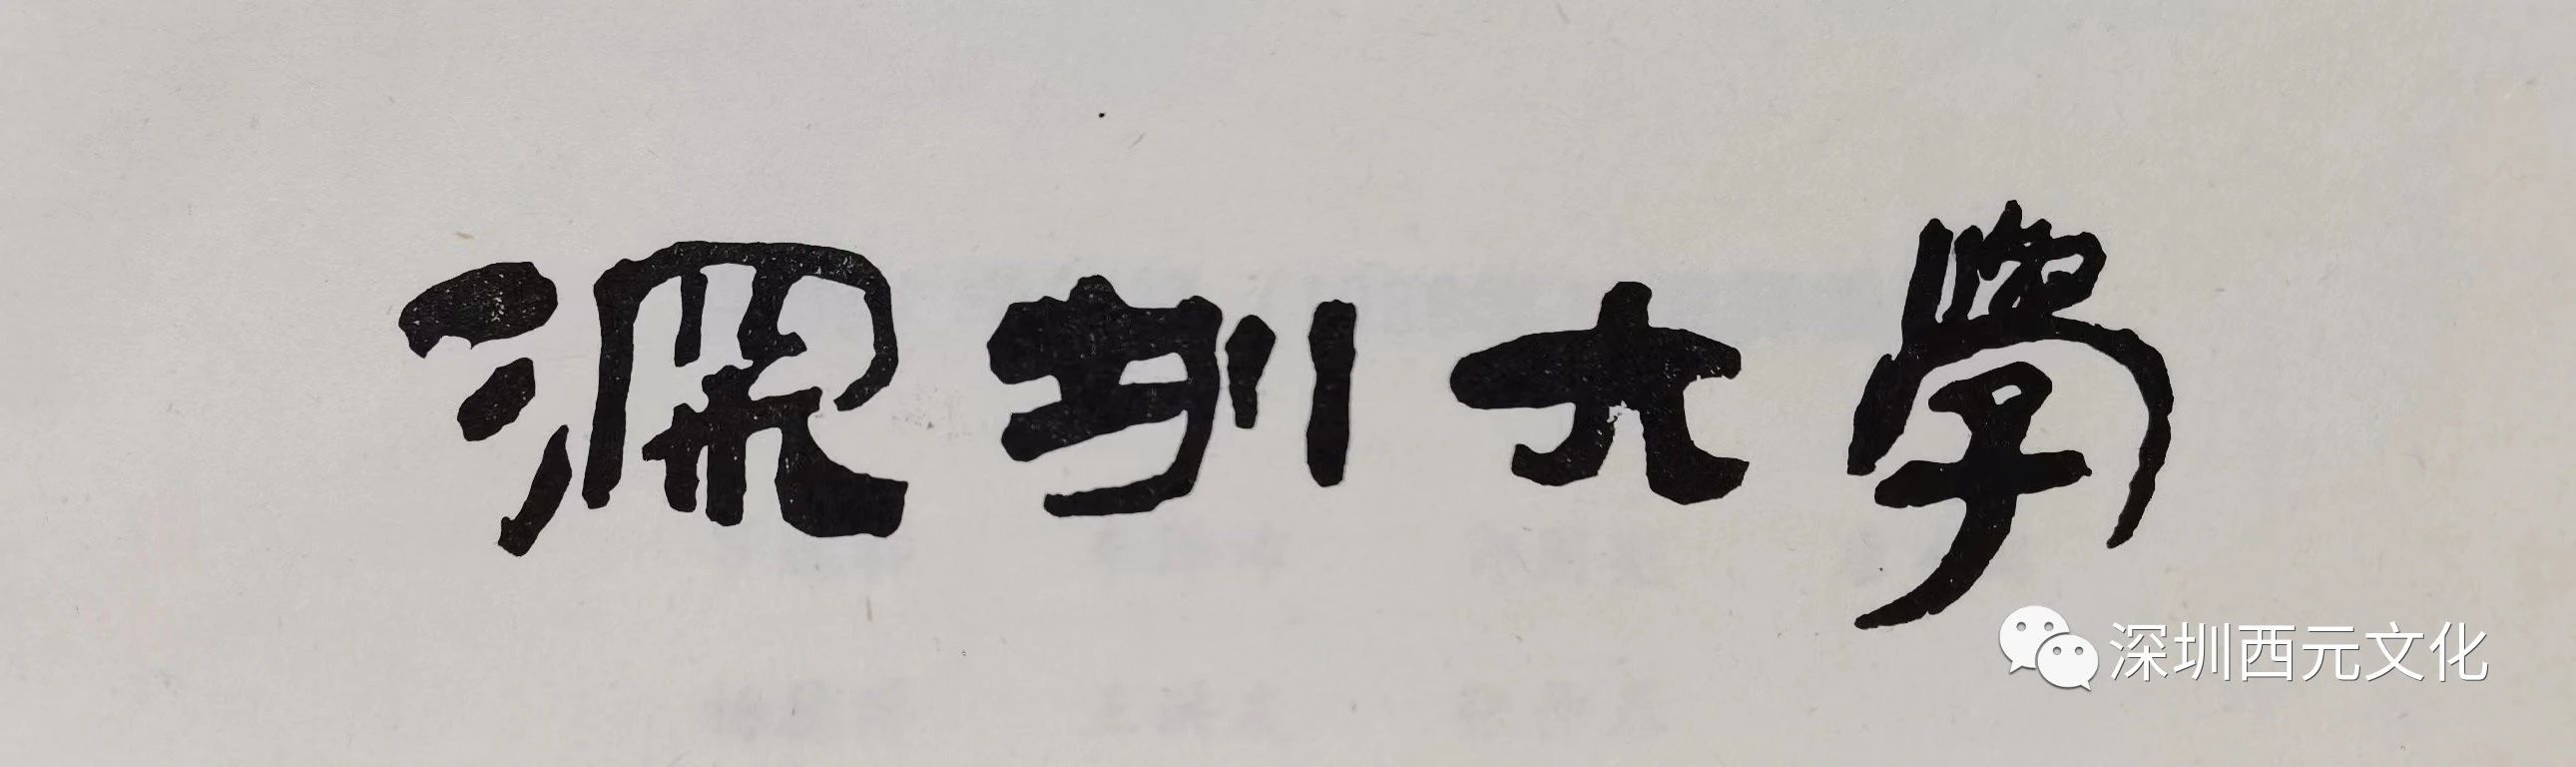 深圳大學
深圳西元文化